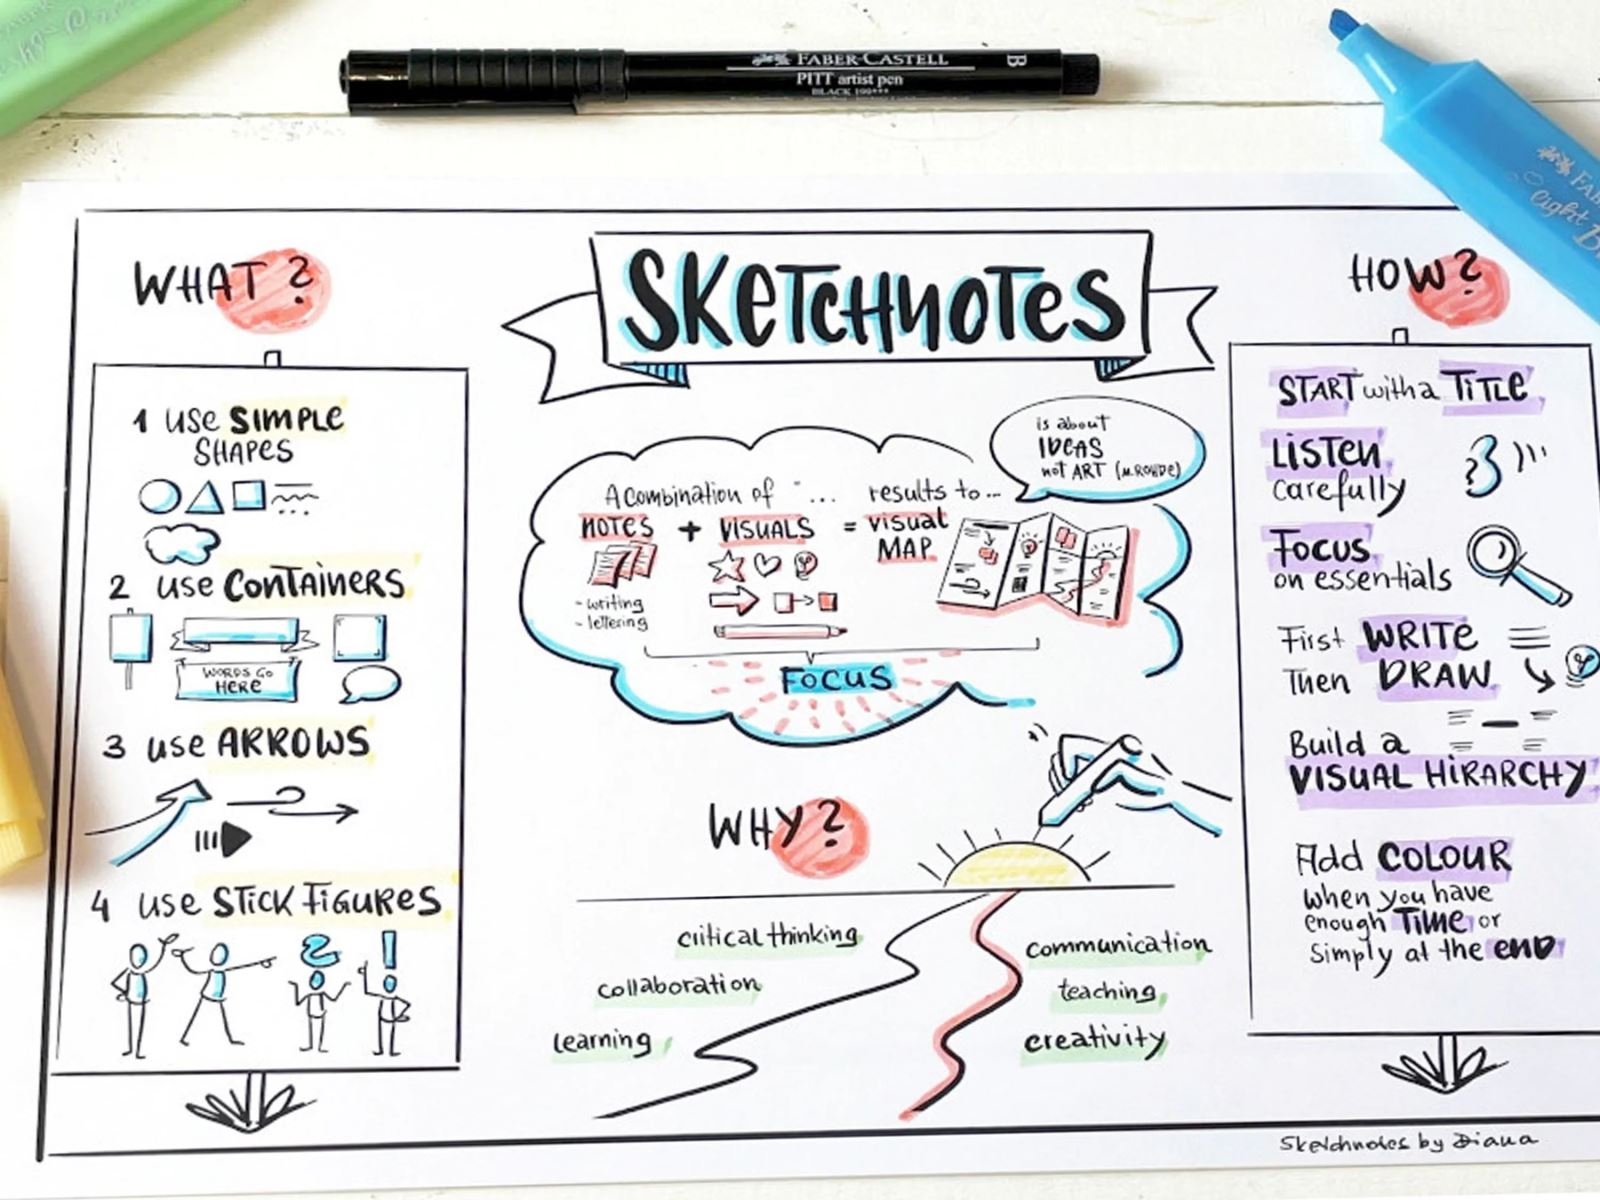 FABER-CASTELL
PITT artist pen
BLACK 199***
B
SKETCHNOTES
WHAT?
1 use SIMPLE
SHAPES
2 use CONTAINERS
WORDS GO
HERE
3 use ARROWS
4 use STICK FIGURES
is about
IDEAS
not ART (M.ROHDE)
A combination of ... results to...
NOTES + VISUALS = visual
MAP
- writing
- lettering
FOCUS
WHY?
critical thinking
collaboration
learning
communication
teaching
creativity
HOW?
START with a TITLE
LISTEN
carefully
FOCUS
on essentials
First WRITE
Then DRAW
Build a
VISUAL HIRARCHY
Add COLOUR
when you have
enough Time or
simply at the end
Sketchnotes by Diana